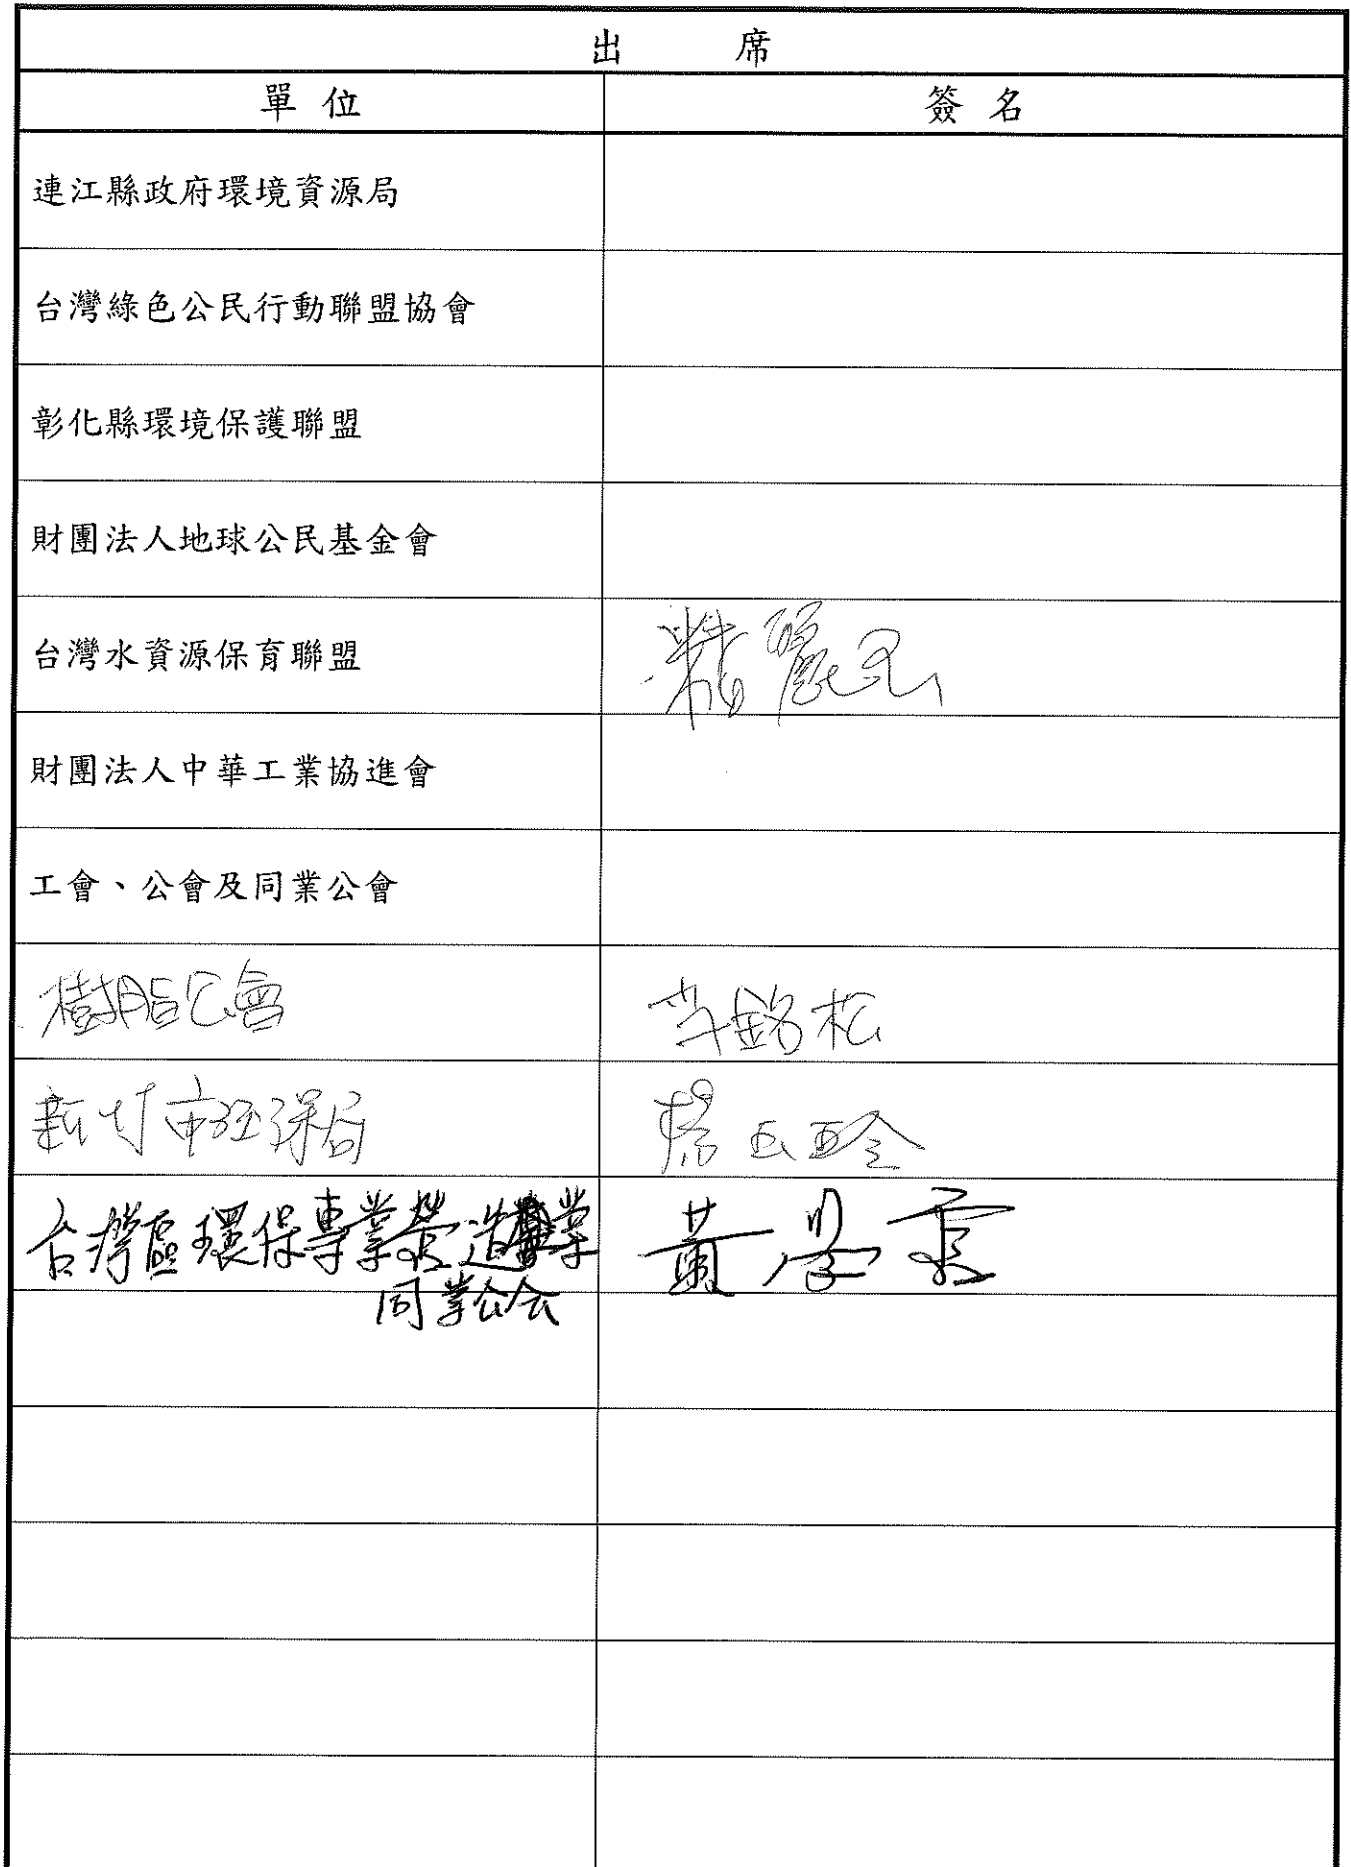 出 席
單 位 簽 名
連江縣政府環境資源局
台灣綠色公民行動聯盟協會
彰化縣環境保護聯盟
財團法人地球公民基金會
台灣水資源保育聯盟 粘麗玉
財團法人中華工業協進會
工會、公會及同業公會
樹脂公會 銘松
新竹市环保局 楊
台灣區環保專業營造業 黃
同業公会